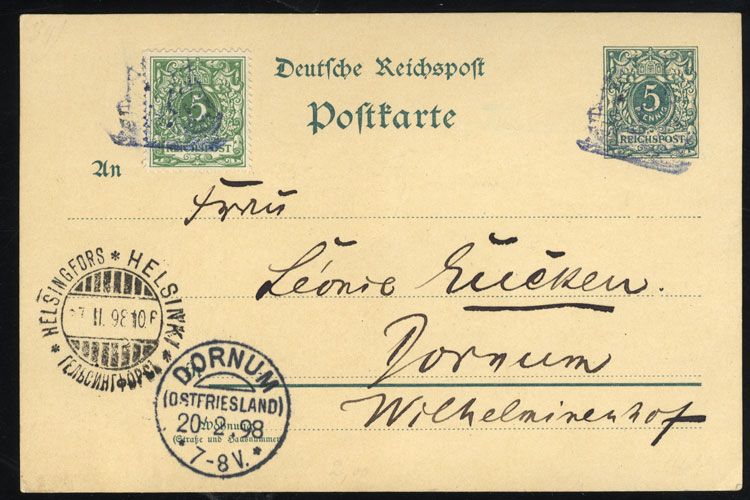 Deutsche Reichspost
Postkarte
5
REICHSPOST
5
PFENNIG
REICHSPOST
An
Frau
Léonie Eucken.
Dornum
Wilhelminenhof
HELSINGFORS * HELSINKI *
ГЕЛЬСИНГФОРСЪ *
DORNUM
(OSTFRIESLAND)
20/2.98
* 7-8V. *
Wohnung
(Straße und Hausnummer)